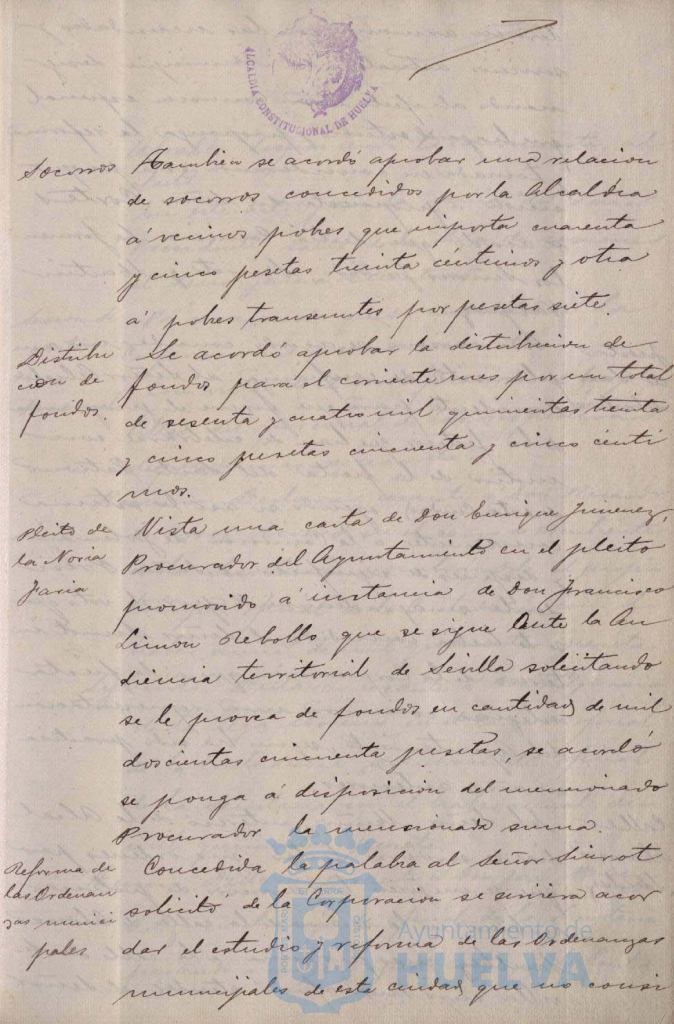 ALCALDÍA CONSTITUCIONAL DE HUELVA
Socorros
Tambien se acordó aprobar una relacion
de socorros concedidos por la Alcaldía
á vecinos pobres que importa cuarenta
y cinco pesetas treinta céntimos y otra
á pobres transeuntes por pesetas siete.
Distribu
cion de
fondos.
Se acordó aprobar la distribucion de
fondos para el corriente mes por un total
de sesenta y cuatro mil quinientas treinta
y cinco pesetas cincuenta y cinco centi
mos.
Pleito de
la Noria
Faria
Vista una carta de Don Enrique Jimenez,
Procurador del Ayuntamiento en el pleito
promovido á instancia de Don Francisco
Limon Rebollo que se sigue ante la Au
diencia territorial de Sevilla solicitando
se le provea de fondos en cantidad de mil
doscientas cincuenta pesetas, se acordó
se ponga á disposicion del mencionado
Procurador la mencionada suma.
Reforma de
las Ordenan
zas munici
pales
Concedida la palabra al Señor Siurot
solicitó de la Corporacion se sirviera acor
dar el estudio y reforma de las Ordenanzas
municipales de esta ciudad que no consi
Ayuntamiento de
HUELVA